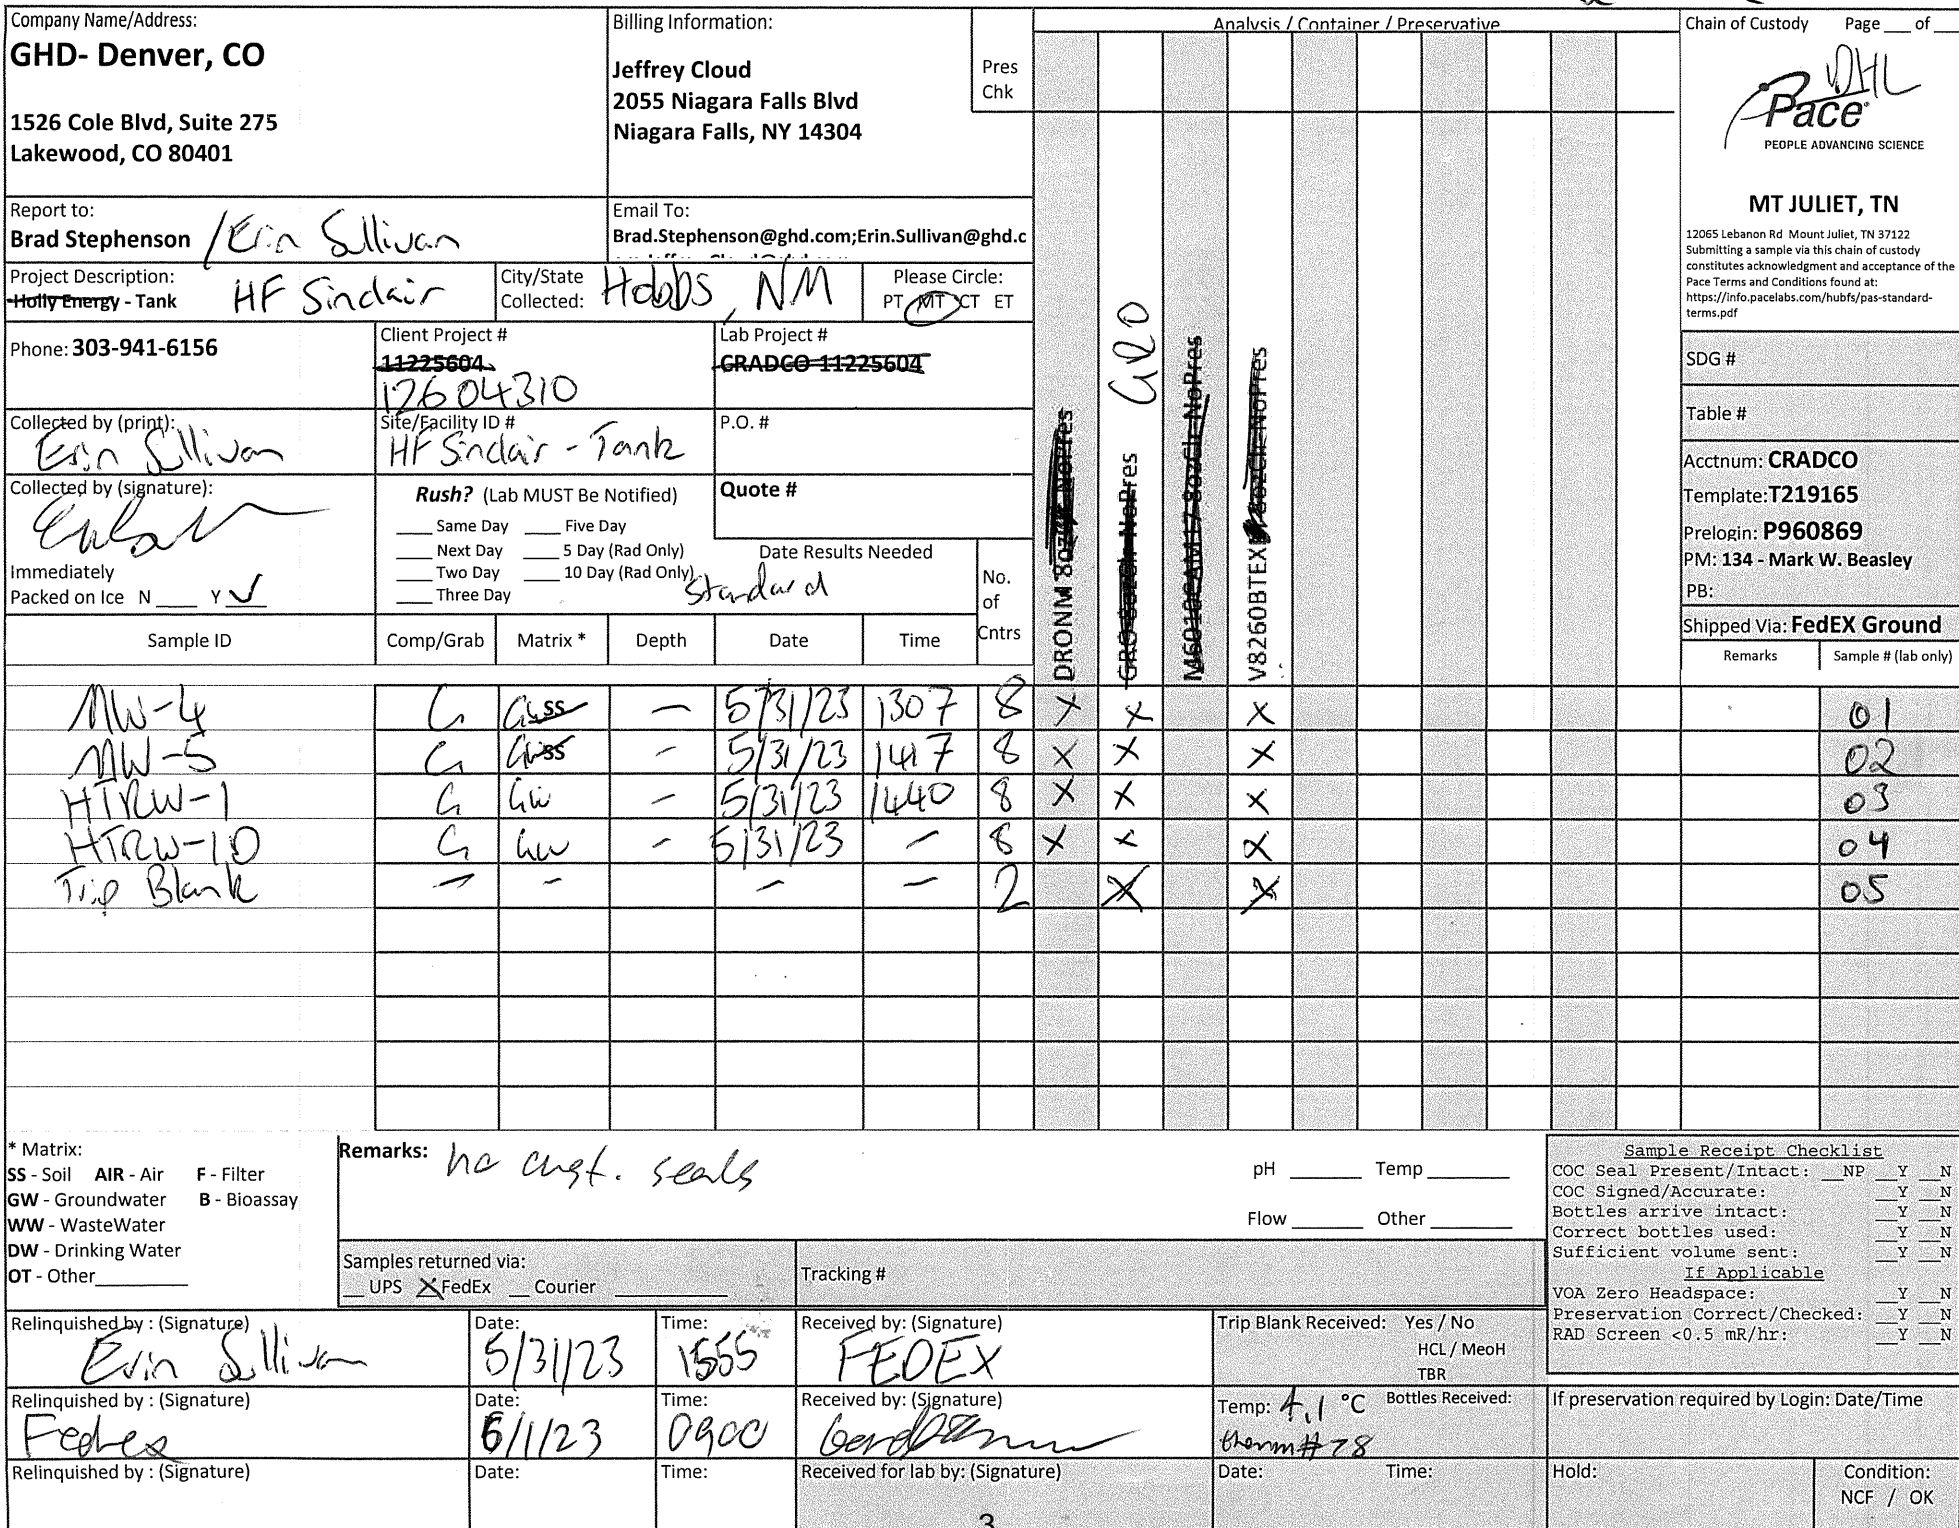 Company Name/Address:
GHD- Denver, CO
1526 Cole Blvd, Suite 275
Lakewood, CO 80401
Billing Information:
Jeffrey Cloud
2055 Niagara Falls Blvd
Niagara Falls, NY 14304
Pres
Chk
Analysis / Container / Preservative
Chain of Custody Page ___ of ___
DHL
Pace
PEOPLE ADVANCING SCIENCE
MT JULIET, TN
12065 Lebanon Rd Mount Juliet, TN 37122
Submitting a sample via this chain of custody
constitutes acknowledgment and acceptance of the
Pace Terms and Conditions found at:
https://info.pacelabs.com/hubfs/pas-standard-
terms.pdf
Report to:
Brad Stephenson /Erin Sullivan
Email To:
Brad.Stephenson@ghd.com;Erin.Sullivan@ghd.c
Project Description:
Holly Energy - Tank HF Sinclair
City/State
Collected: Hobbs, NM
Please Circle:
PT MT CT ET
Phone: 303-941-6156
Client Project #
11225604
12604310
Lab Project #
CRADCO-11225604
Collected by (print):
Erin Sullivan
Site/Facility ID #
HF Sinclair - Tank
P.O. #
Collected by (signature):
Immediately
Packed on Ice N ____ Y ✓
Rush? (Lab MUST Be Notified)
____ Same Day ____ Five Day
____ Next Day ____ 5 Day (Rad Only)
____ Two Day ____ 10 Day (Rad Only)
____ Three Day
Quote #
Date Results Needed
Standard
No.
of
Cntrs
DRONM 8oz NoPres
GRO 8ozClr-NoPres GRO
8ozClr-NoPres
V8260BTEX 8ozClr-NoPres
SDG #
Table #
Acctnum: CRADCO
Template:T219165
Prelogin: P960869
PM: 134 - Mark W. Beasley
PB:
Shipped Via: FedEX Ground
Sample ID Comp/Grab Matrix * Depth Date Time Remarks Sample # (lab only)
MW-4 G GW SS — 5/31/23 1307 8 X X X 01
MW-5 G GW SS - 5/31/23 1417 8 X X X 02
HTRW-1 G GW - 5/31/23 1440 8 X X X 03
HTRW-1D G GW - 5/31/23 - 8 X X X 04
Trip Blank - - - - 2 X X 05
* Matrix:
SS - Soil AIR - Air F - Filter
GW - Groundwater B - Bioassay
WW - WasteWater
DW - Drinking Water
OT - Other__________
Remarks: no cust. seals
pH _______ Temp _______
Flow _______ Other _______
Samples returned via:
__ UPS X FedEx __ Courier __________
Tracking #
Sample Receipt Checklist
COC Seal Present/Intact: __NP __Y __N
COC Signed/Accurate: __Y __N
Bottles arrive intact: __Y __N
Correct bottles used: __Y __N
Sufficient volume sent: __Y __N
If Applicable
VOA Zero Headspace: __Y __N
Preservation Correct/Checked: __Y __N
RAD Screen <0.5 mR/hr: __Y __N
Relinquished by : (Signature)
Erin Sullivan
Date:
5/31/23
Time:
1555
Received by: (Signature)
FEDEX
Trip Blank Received: Yes / No
HCL / MeoH
TBR
Relinquished by : (Signature)
Fedex
Date:
6/1/23
Time:
0900
Received by: (Signature)
Temp: 4.1 °C Bottles Received:
therm# 78
If preservation required by Login: Date/Time
Relinquished by : (Signature)
Date:
Time:
Received for lab by: (Signature)
3
Date: Time:
Hold:
Condition:
NCF / OK